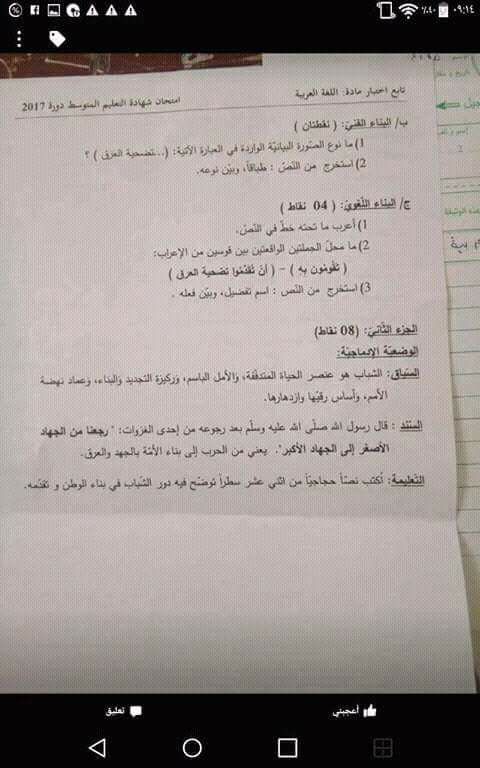 ٠٩:١٤
٪٤٠
تابع اختبار مادة: اللغة العربية
امتحان شهادة التعليم المتوسط دورة 2017
ب/ البناء الفنيّ: ( نقطتان )
1) ما نوع الصّورة البيانيّة الواردة في العبارة الآتية: (...تضحية العرق ) ؟
2) استخرج من النّصّ : طباقاً، وبيّن نوعه.
ج/ البناء اللّغويّ: ( 04 نقاط )
1) أعرب ما تحته خطّ في النّصّ.
2) ما محلّ الجملتين الواقعتين بين قوسين من الإعراب:
( تقُومُون بِهِ ) – ( أنْ تُقدّمُوا تضحية العرق )
3) استخرج من النّصّ : اسم تفضيل، وبيّن فعله .
الجزء الثّاني: (08 نقاط)
الوضعيّة الإدماجيّة:
السّياق: الشباب هو عنصر الحياة المتدفّقة، والأمل الباسم، وركيزة التجديد والبناء، وعماد نهضة
الأمم، وأساس رقيّها وازدهارها.
السّند : قال رسول الله صلّى الله عليه وسلّم بعد رجوعه من إحدى الغزوات: " رجعنا من الجهاد
الأصغر إلى الجهاد الأكبر". يعني من الحرب إلى بناء الأمّة بالجهد والعرق.
التّعليمة: أكتب نصّاً حجاجيّاً من اثني عشر سطراً توضّح فيه دور الشّباب في بناء الوطن و تقدّمه.
أعجبني
تعليق